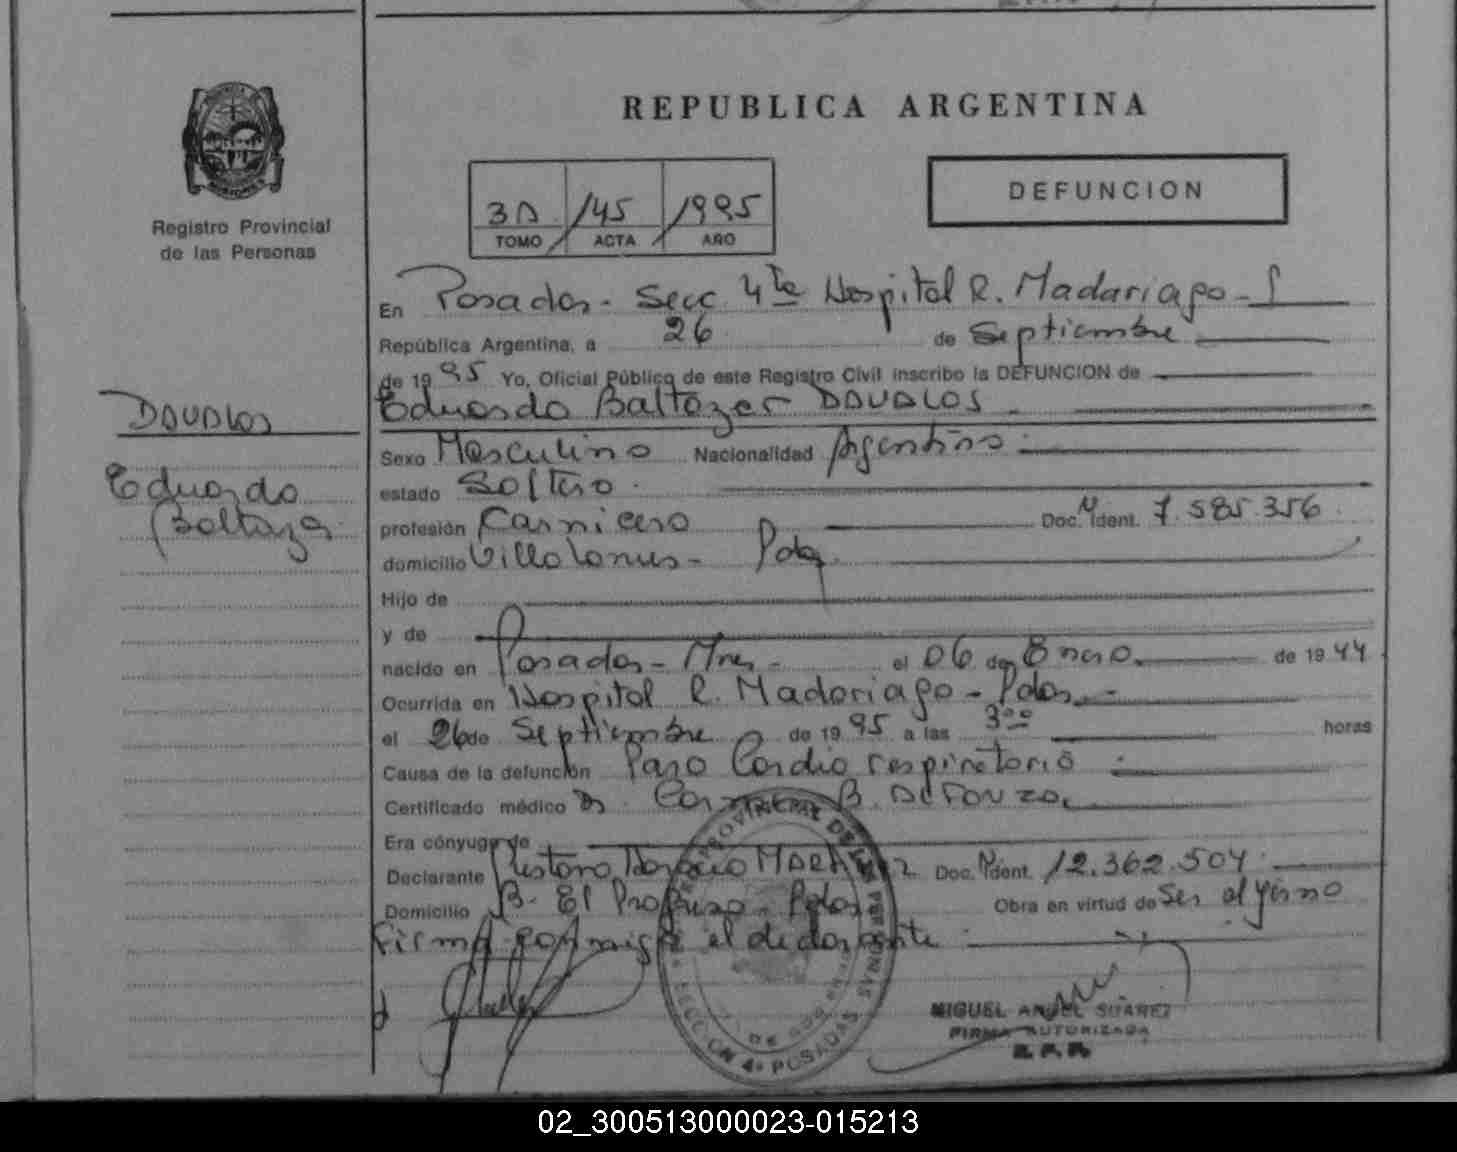 REPUBLICA ARGENTINA
DEFUNCION
Registro Provincial
de las Personas
3D / 145 / 1995
TOMO ACTA AÑO
En Posadas - Secc. 4ta Hospital R. Madariaga -
República Argentina, a 26 de Septiembre
de 19 95 Yo, Oficial Público de este Registro Civil inscribo la DEFUNCION de
DAVALOS
Eduardo
Baltazar
Eduardo Baltazar DAVALOS
Sexo Masculino Nacionalidad Argentina
estado Soltero
profesión Carnicero Doc. N Ident. 7.585.356
domicilio Pdas.
Hijo de
y de
nacido en Posadas - Mnes - el 06 de Enero de 19 44
Ocurrida en Hospital R. Madariaga - Pdas.
el 26 de Septiembre de 19 95 a las 3 00 horas
Causa de la defunción Paro Cardio respiratorio
Certificado médico B.
Era cónyuge de
Declarante Horacio MARTINEZ Doc. N Ident. 12.362.504
Domicilio B. El Pdas Obra en virtud de Ser el yerno
Firma conmigo el declarante
PROVINCIAL DE LAS PERSONAS
SECCION 4a POSADAS
MIGUEL ANGEL SUAREZ
FIRMA AUTORIZADA
R.P.P.
02_300513000023-015213